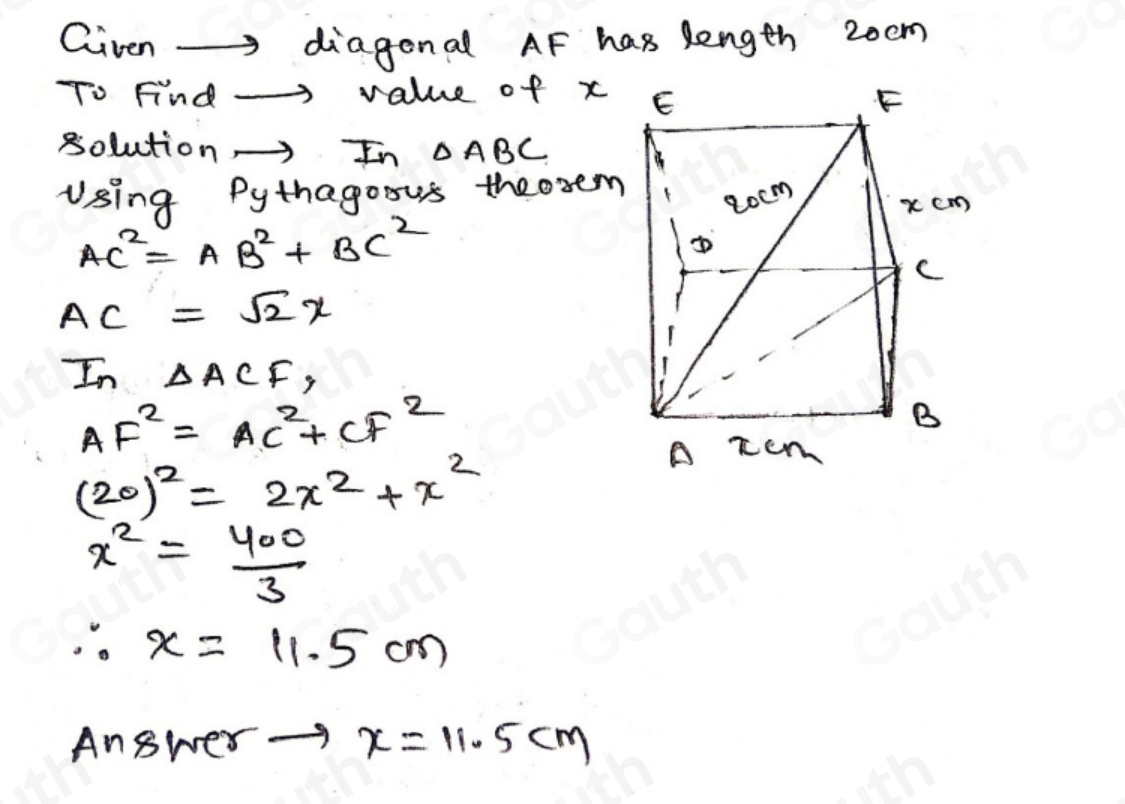 Given → diagonal AF has length 20cm
To Find → value of x
Solution → In ΔABC
Using Pythagorus theorem
AC² = AB² + BC²
AC = √2 x
In ΔACF,
AF² = AC² + CF²
(20)² = 2x² + x²
x² = 400/3
∴ x = 11.5 cm
Answer → x = 11.5 cm
E
F
20cm
x cm
D
C
A
x cm
B
Gauth